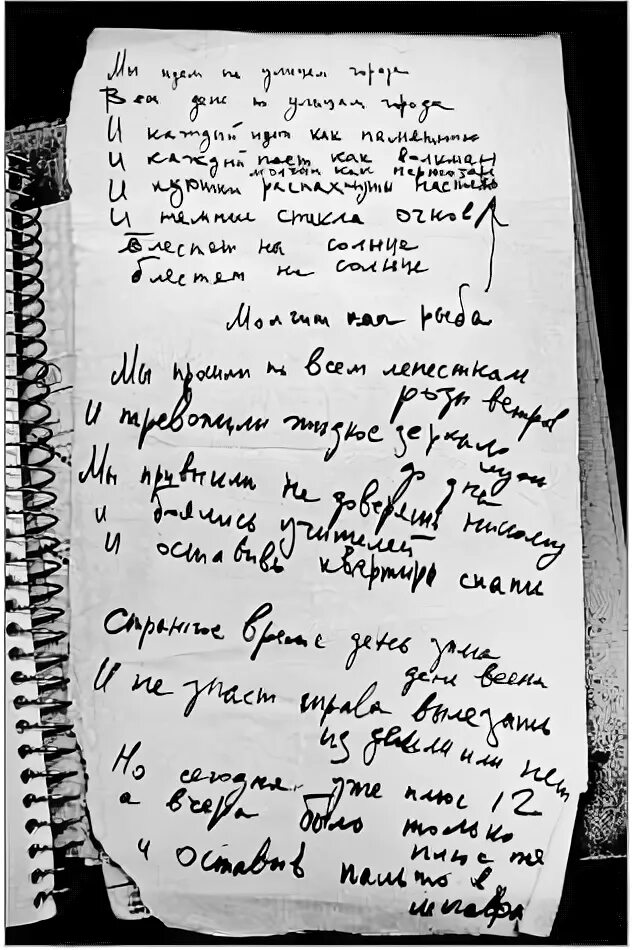 Мы идем по улицам города
Весь день по улицам города
И каждый идет как памятник
И каждый поет как
молчит как
И куртки распахнуты настежь
И темные стекла очков
Блестят на солнце
блестят на солнце
Молчит как рыба
Мы прошли по всем лепесткам
розы ветров
И переводили жидкое зеркало
до дна
Мы привыкли не доверять никому
и боялись учителей
И оставив квартиру спали
Странное время день зима
день весна
И не знает трава вылезать
из земли или нет
Но сегодня уже плюс 12
а вчера было только
плюс
и оставив пальто в
шкафу